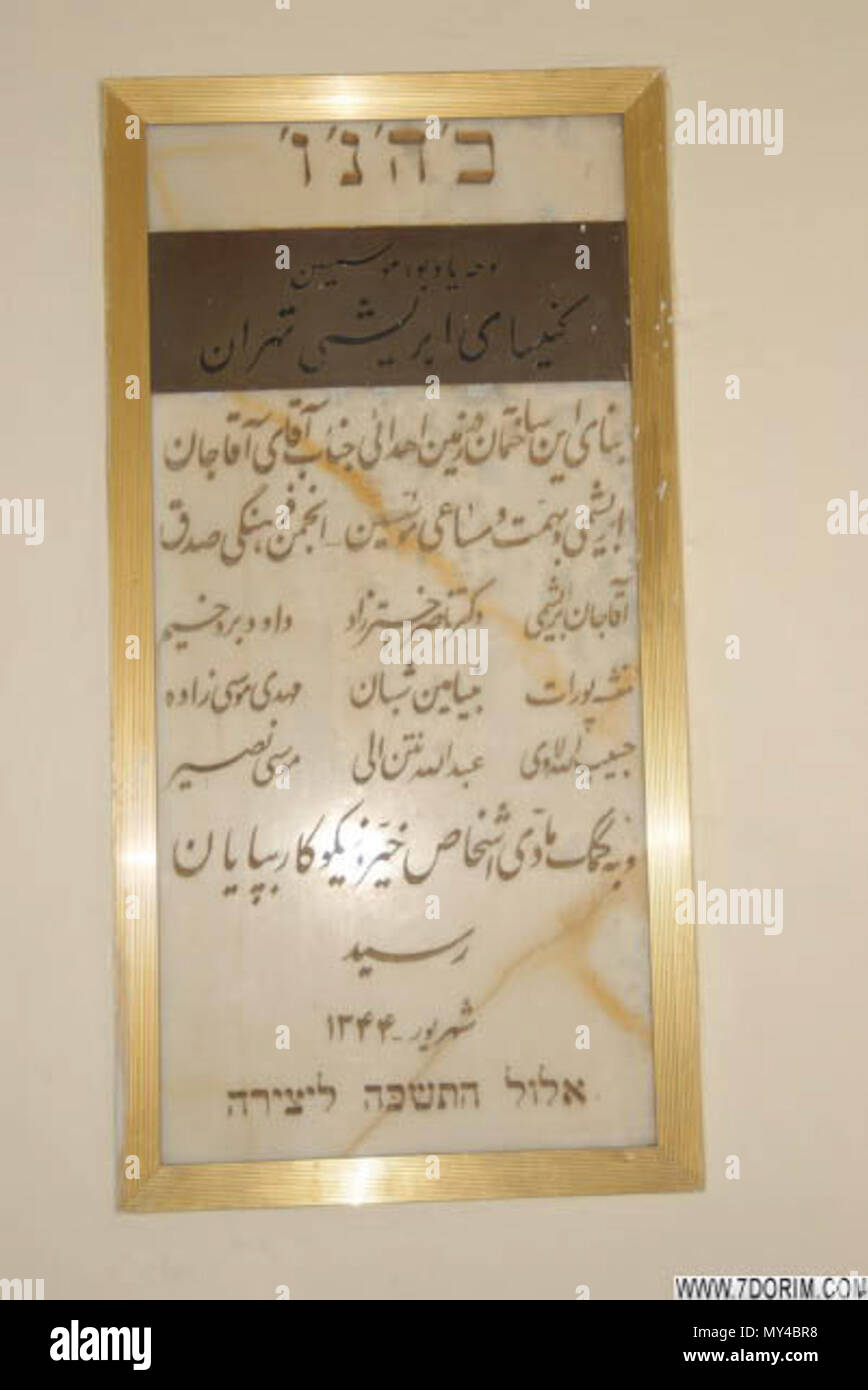 ב'ה'נ'ו'
لوحه یادبود موسسین
کنیسای ابریشمی تهران
بنای این ساختمان در زمین اهدائی جناب آقای آقاجان
ابریشمی و بهمت و مساعی مؤسسین - انجمن فرهنگی صدق
آقاجان ابریشمی دکتر ناصر اخترزاد داود بروخیم
پورات بنیامین شبان مهدی موسی زاده
حبیب الله لاوی عبدالله نتن الی موسی نصیر
و به کمک مادی اشخاص خیر و نیکوکار بپایان
رسید
شهریور - ۱۳۴۴
אלול התשכה ליצירה
WWW.7DORIM.COM
alamy
Image ID: MY4BR8
www.alamy.com